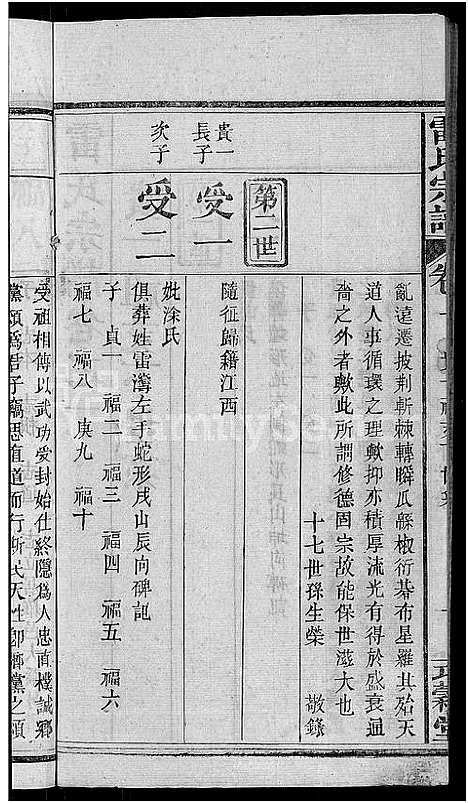 雷氏宗譜
亂遠遷披荆斬棘轉瞬瓜緜椒衍碁布星羅其殆天
道人事循環之理歟抑亦積厚流光有得於盛衰通
嗇之外者歟此所謂修德固宗故能保世滋大也
十七世孫生榮 敬錄
第二世
貴一
長子
受一
隨征歸籍江西
次子
受二
妣涂氏
俱葬姓雷灣左手蛇形戌山辰向碑誌
子 貞一 福二 福三 福四 福五 福六
福七 福八 庚九 福十
受祖相傳以武功受封始仕終隱爲人忠直樸誠鄉
黨頌爲君子
思直道而行斯民天性卽
黨之頌